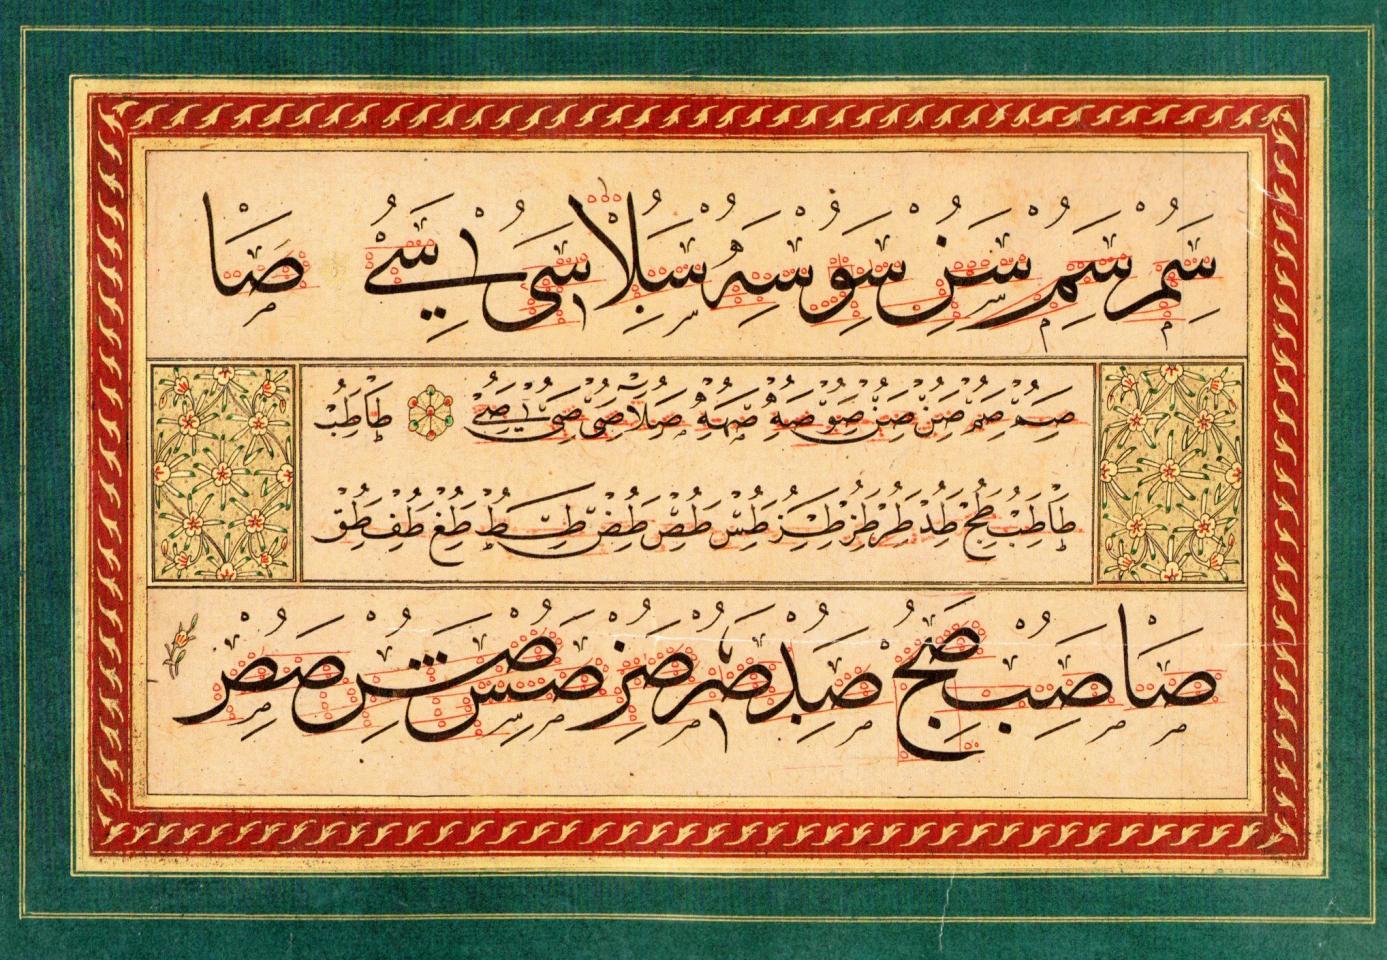 سم سم سن سو سه سلا سى سے صا
صم صم صن صن صو صه صهه صلا صى صى صے طا طب
طا طب طج طد طر طز طس طص طض ط طع طف طق
صا صب صج صد صر صز صس